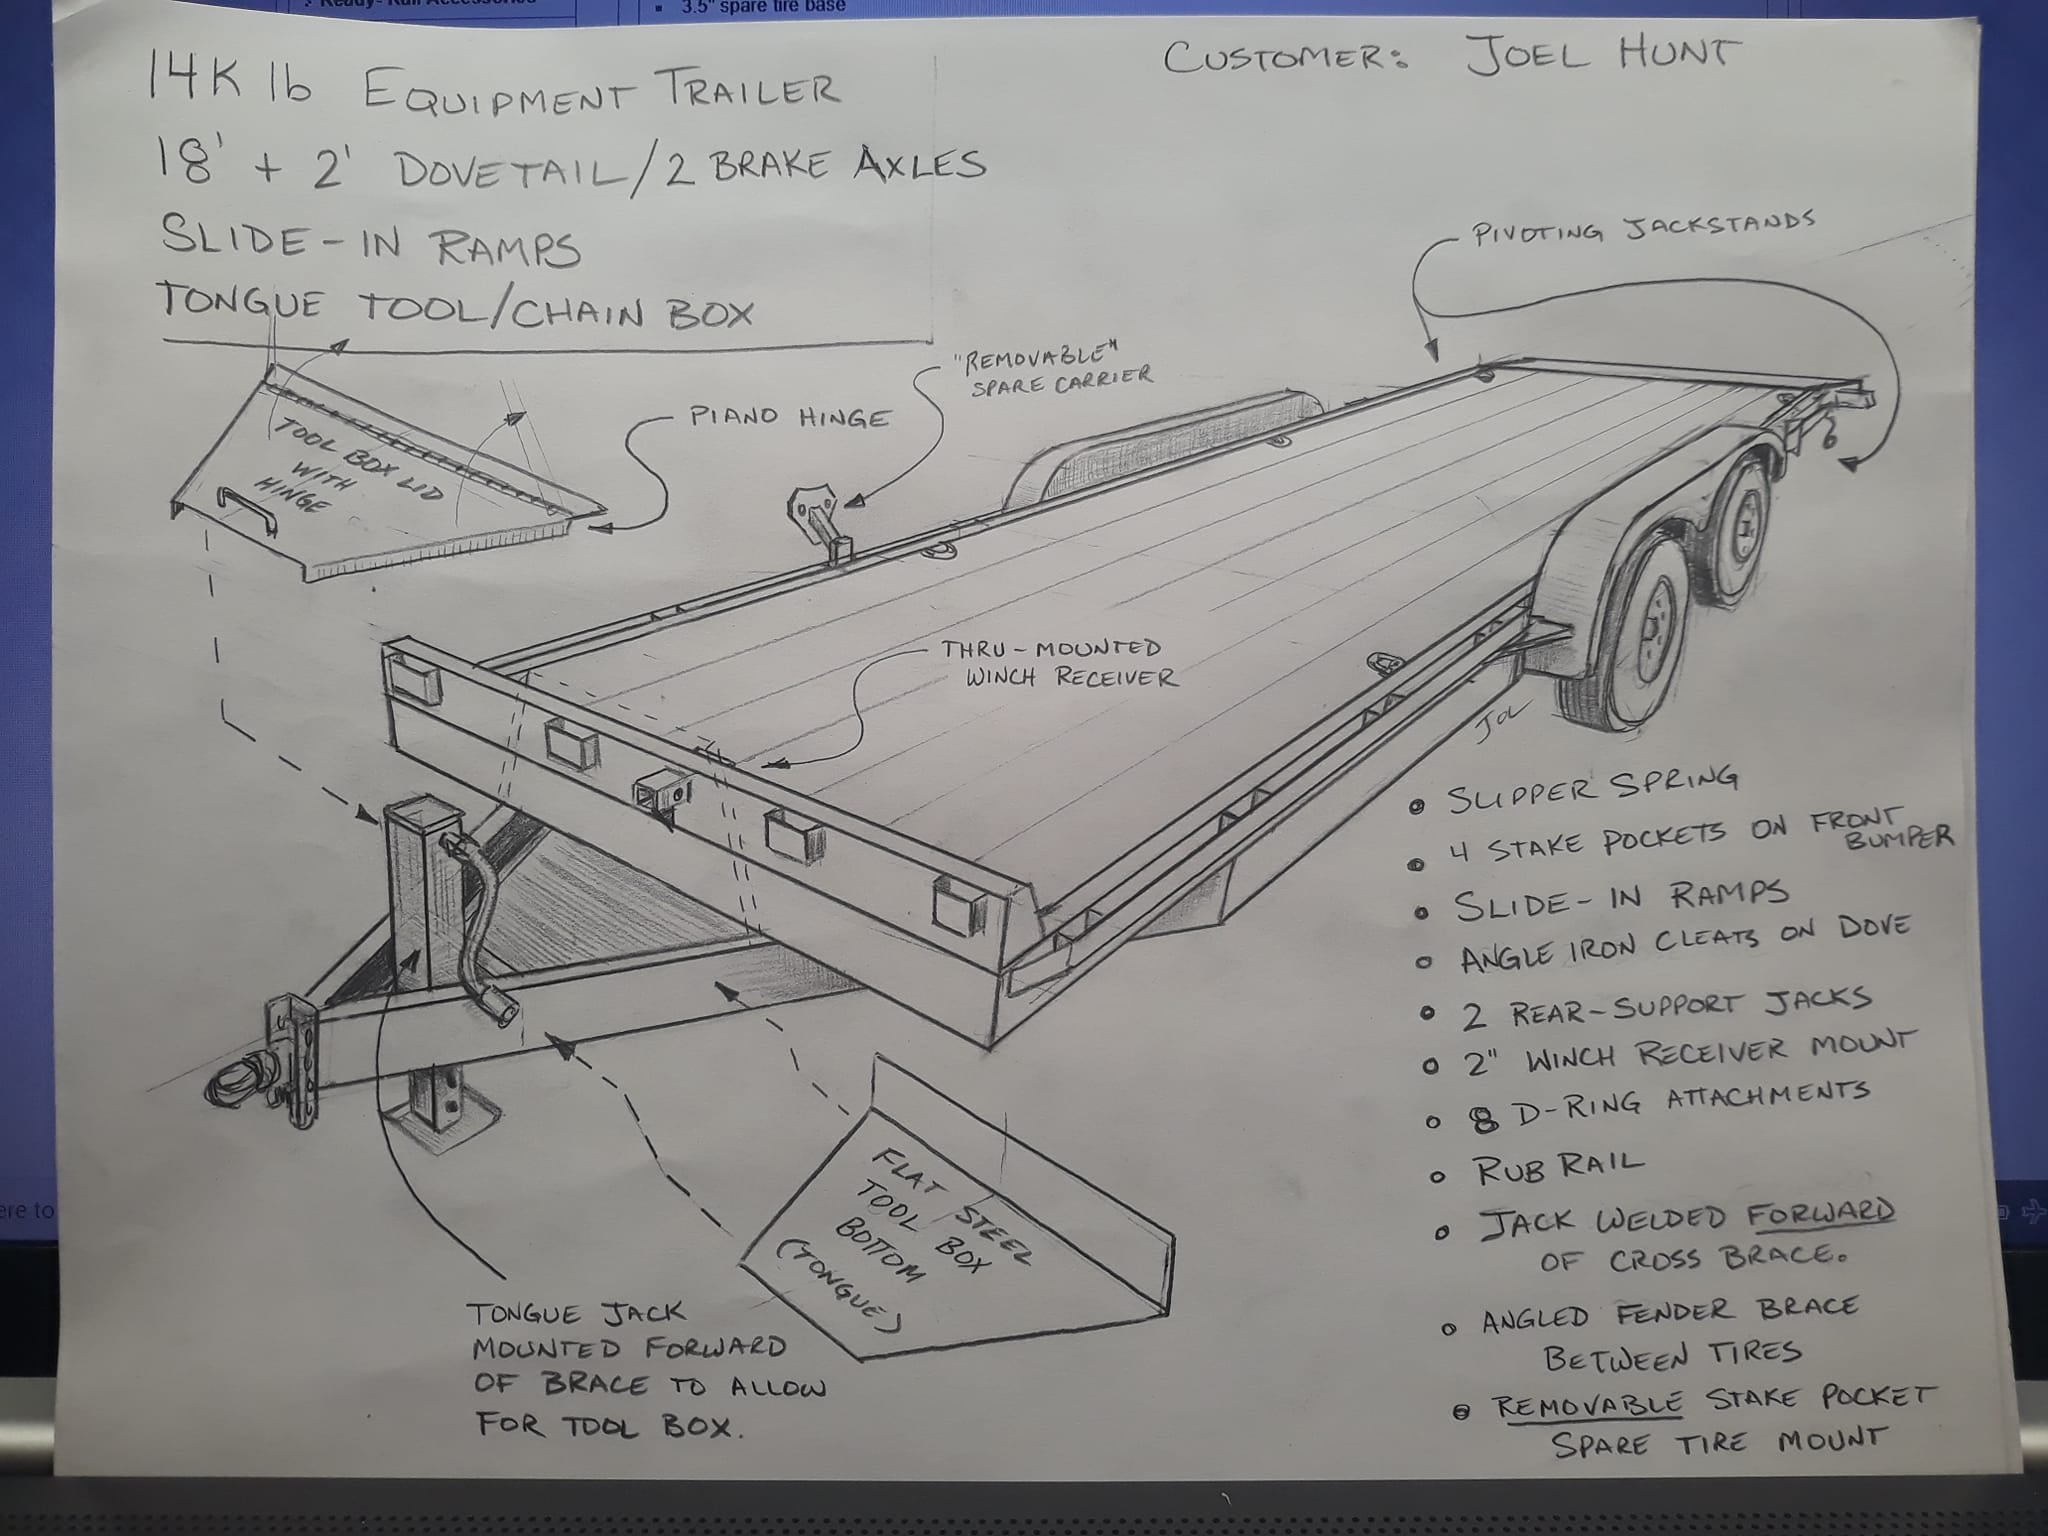 3.5" spare tire base
14K lb EQUIPMENT TRAILER
18' + 2' DOVETAIL/2 BRAKE AXLES
SLIDE-IN RAMPS
TONGUE TOOL/CHAIN BOX
CUSTOMER: JOEL HUNT
PIVOTING JACKSTANDS
"REMOVABLE"
SPARE CARRIER
PIANO HINGE
TOOL BOX LID
WITH
HINGE
THRU-MOUNTED
WINCH RECEIVER
JOL
SLIPPER SPRING
4 STAKE POCKETS ON FRONT
BUMPER
SLIDE-IN RAMPS
ANGLE IRON CLEATS ON DOVE
2 REAR-SUPPORT JACKS
2" WINCH RECEIVER MOUNT
8 D-RING ATTACHMENTS
RUB RAIL
JACK WELDED FORWARD
OF CROSS BRACE.
ANGLED FENDER BRACE
BETWEEN TIRES
REMOVABLE STAKE POCKET
SPARE TIRE MOUNT
FLAT STEEL
TOOL BOX
BOTTOM
(TONGUE)
TONGUE JACK
MOUNTED FORWARD
OF BRACE TO ALLOW
FOR TOOL BOX.
ere to